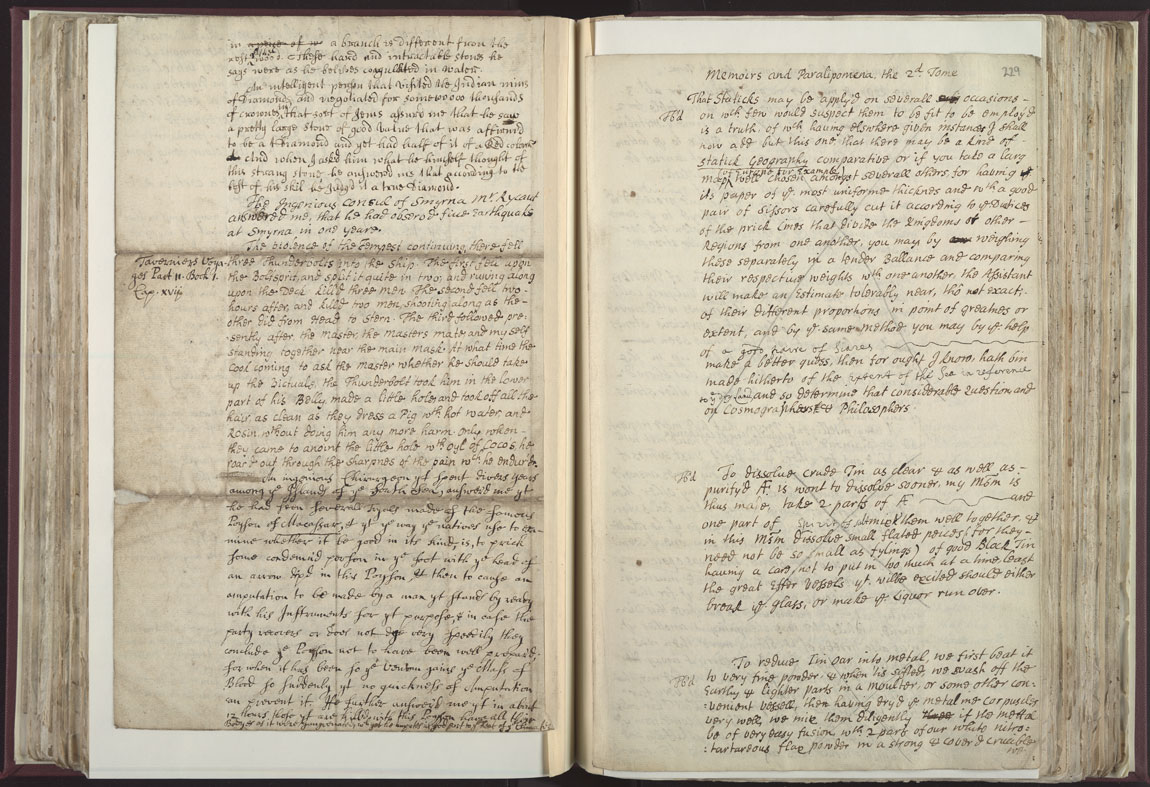 in a peice of w a branch is different from the
rest were. These hard and intractable stones he
says were as he beleives coagulated in water.
An intelligent person that visited the Indian mines
of Diamond and negotiated for some thousands
of crownes in that sort of Jems assurd me that he saw
a pretty large stone of good value that was affirmd
to be a Diamond and yet had half of it of a Red colour
And when I asked him what he himself thought of
this strang stone he answerd me that according to the
best of his skil he Judgd it a true Diamond.
The Ingenious Consul of Smyrna Mr. Rycaut
answered me, that he had observd five Earthquaks
at Smyrna in one yeare.
The violence of the tempest continuing there fell
Taverniers Voya-
ges Part II. Book 1.
Cap. xviij
three Thunderbolts into the ship. The first fell upon
the Boltsprit, and split it quite in two, and runing along
upon the Deck killd three men The second fell two
hours after, and killed two men, shooting along as the
other did from Head to Stern. The third followed pre-
sently after the Master, the Masters mate and my self
standing together near the main Mask. At what time the
Cook coming to ask the Master whether he should take
up the Victuals, the Thunderbolt took him in the lower
part of his Belly, made a little hole, and took off all the
hair as clean as they dress a Pig wth hot water, and
Rosin, wthout doing him any more harm. Only when
they came to anoint the little hole wth oyl of Cocos, he
roar'd out through the sharpnes of the pain wch he endurd.
An ingenious Chirurgeon yt spent divers years
among ye Islands of ye South Sea, answerd me yt
he had seen severall tryals made of the famous
Poyson of Macassar, & yt ye way ye natives use to exa-
mine whether it be good in its kind, is, to prick
some condemnd person in ye foot with ye head of
an arrow dipd in this Poyson & then to cause an
amputation to be made by a man yt stands by ready
with his Instruments for yt purpose, & in case the
party recovers or does not dye very speedily they
conclude ye Poyson not to have been well prepard;
for when it has been so ye venom gains ye Mass of
Blood so suddenly yt no quickness of Amputation
can prevent it. He further answerd me yt in about
12 hours those yt are killd with this Poyson have all their
229
Memoirs and Paralipomena, the 2d. Tome
That Staticks may be apply'd on severall occasions
on wch few would suspect them to be fit to be employ'd
is a truth, of wch having elswhere given instances I shall
now add but this one, that there may be a kind of
statick Geography comparative or if you take a larg
(of Europe for Example)
map well chosen amongst severall others, for having
its paper of ye most uniforme thicknes and wth a good
pair of Sissors carefully cut it according to ye Duches
of the prick lines that divide the Kingdoms or other
Regions from one another, you may by weighing
these separately in a tender Ballance and comparing
their respective weights wth one another, the Assistant
will make an Estimate tolerably near, tho not exact,
of their different proportions in point of greatnes or
extent, and by ye same method you may by ye help
of a good paire of Scales
make a better guess, then for ought I know, hath bin
made hitherto of the extent of the Sea in reference
to ye land and so determine that considerable Question and
on Cosmographers & Philosophers.
To dissolve crude Tin as clear & as well as
purify'd Æ is wont to dissolve sooner, my Msm is
thus made, take 2 parts of Æ and
one part of Spirit of salt mix them well together, &
in this Msm dissolve small flated peices (for they
need not be so small as fylings) of good Black Tin
having a care not to put in too much at a time, least
the great Effervessels yt. wilbe excited should either
break ye glass; or make ye Liquor run over.
To reduce Tin Oar into metal, we first beat it
to very fine powder & when 'tis sifted, we wash off the
Earthy & lighter parts in a Moulter, or some other con-
venient vessell, then having dry'd ye metalline Corpuscles
very well, we mix them diligently if the mettal
be of very easy fusion wth 2 parts of our white nitro-
tartareous flux powder in a strong & cover'd crucible